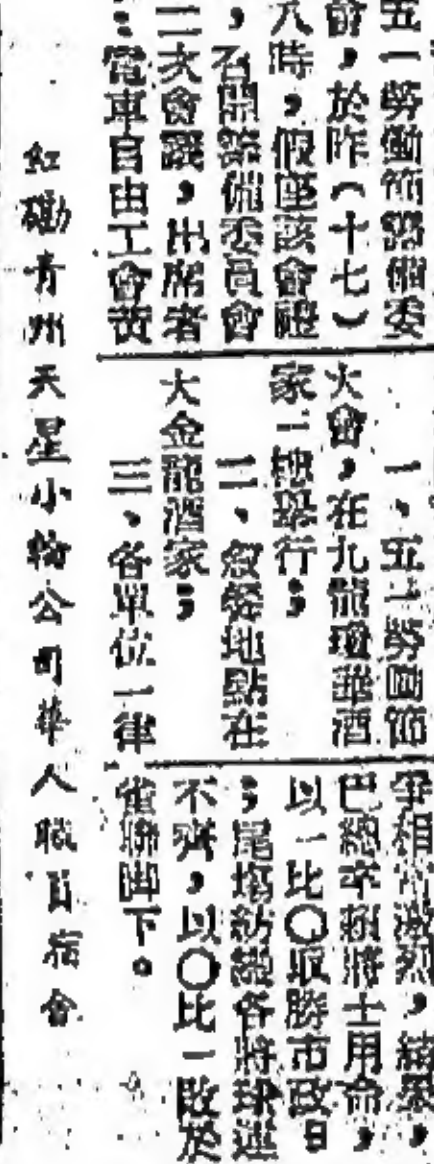 五一勞働節籌備委
會,於昨(十七)
八時,假座該會禮
,召開籌備委員會
二次會議,出席者
:電車自由工會黃
一、五一勞働節
大會,在九龍瓊華酒
家二樓舉行;
二、敘餐地點在
大金龍酒家;
三、各單位一律
爭相當激烈,結果,
巴總卒賴將士用命,
以一比〇取勝市政日
;尾場紡織各將球運
不濟,以〇比一敗於
雀聯脚下。
紅磡青州天星小輪公司華人職員宿舍